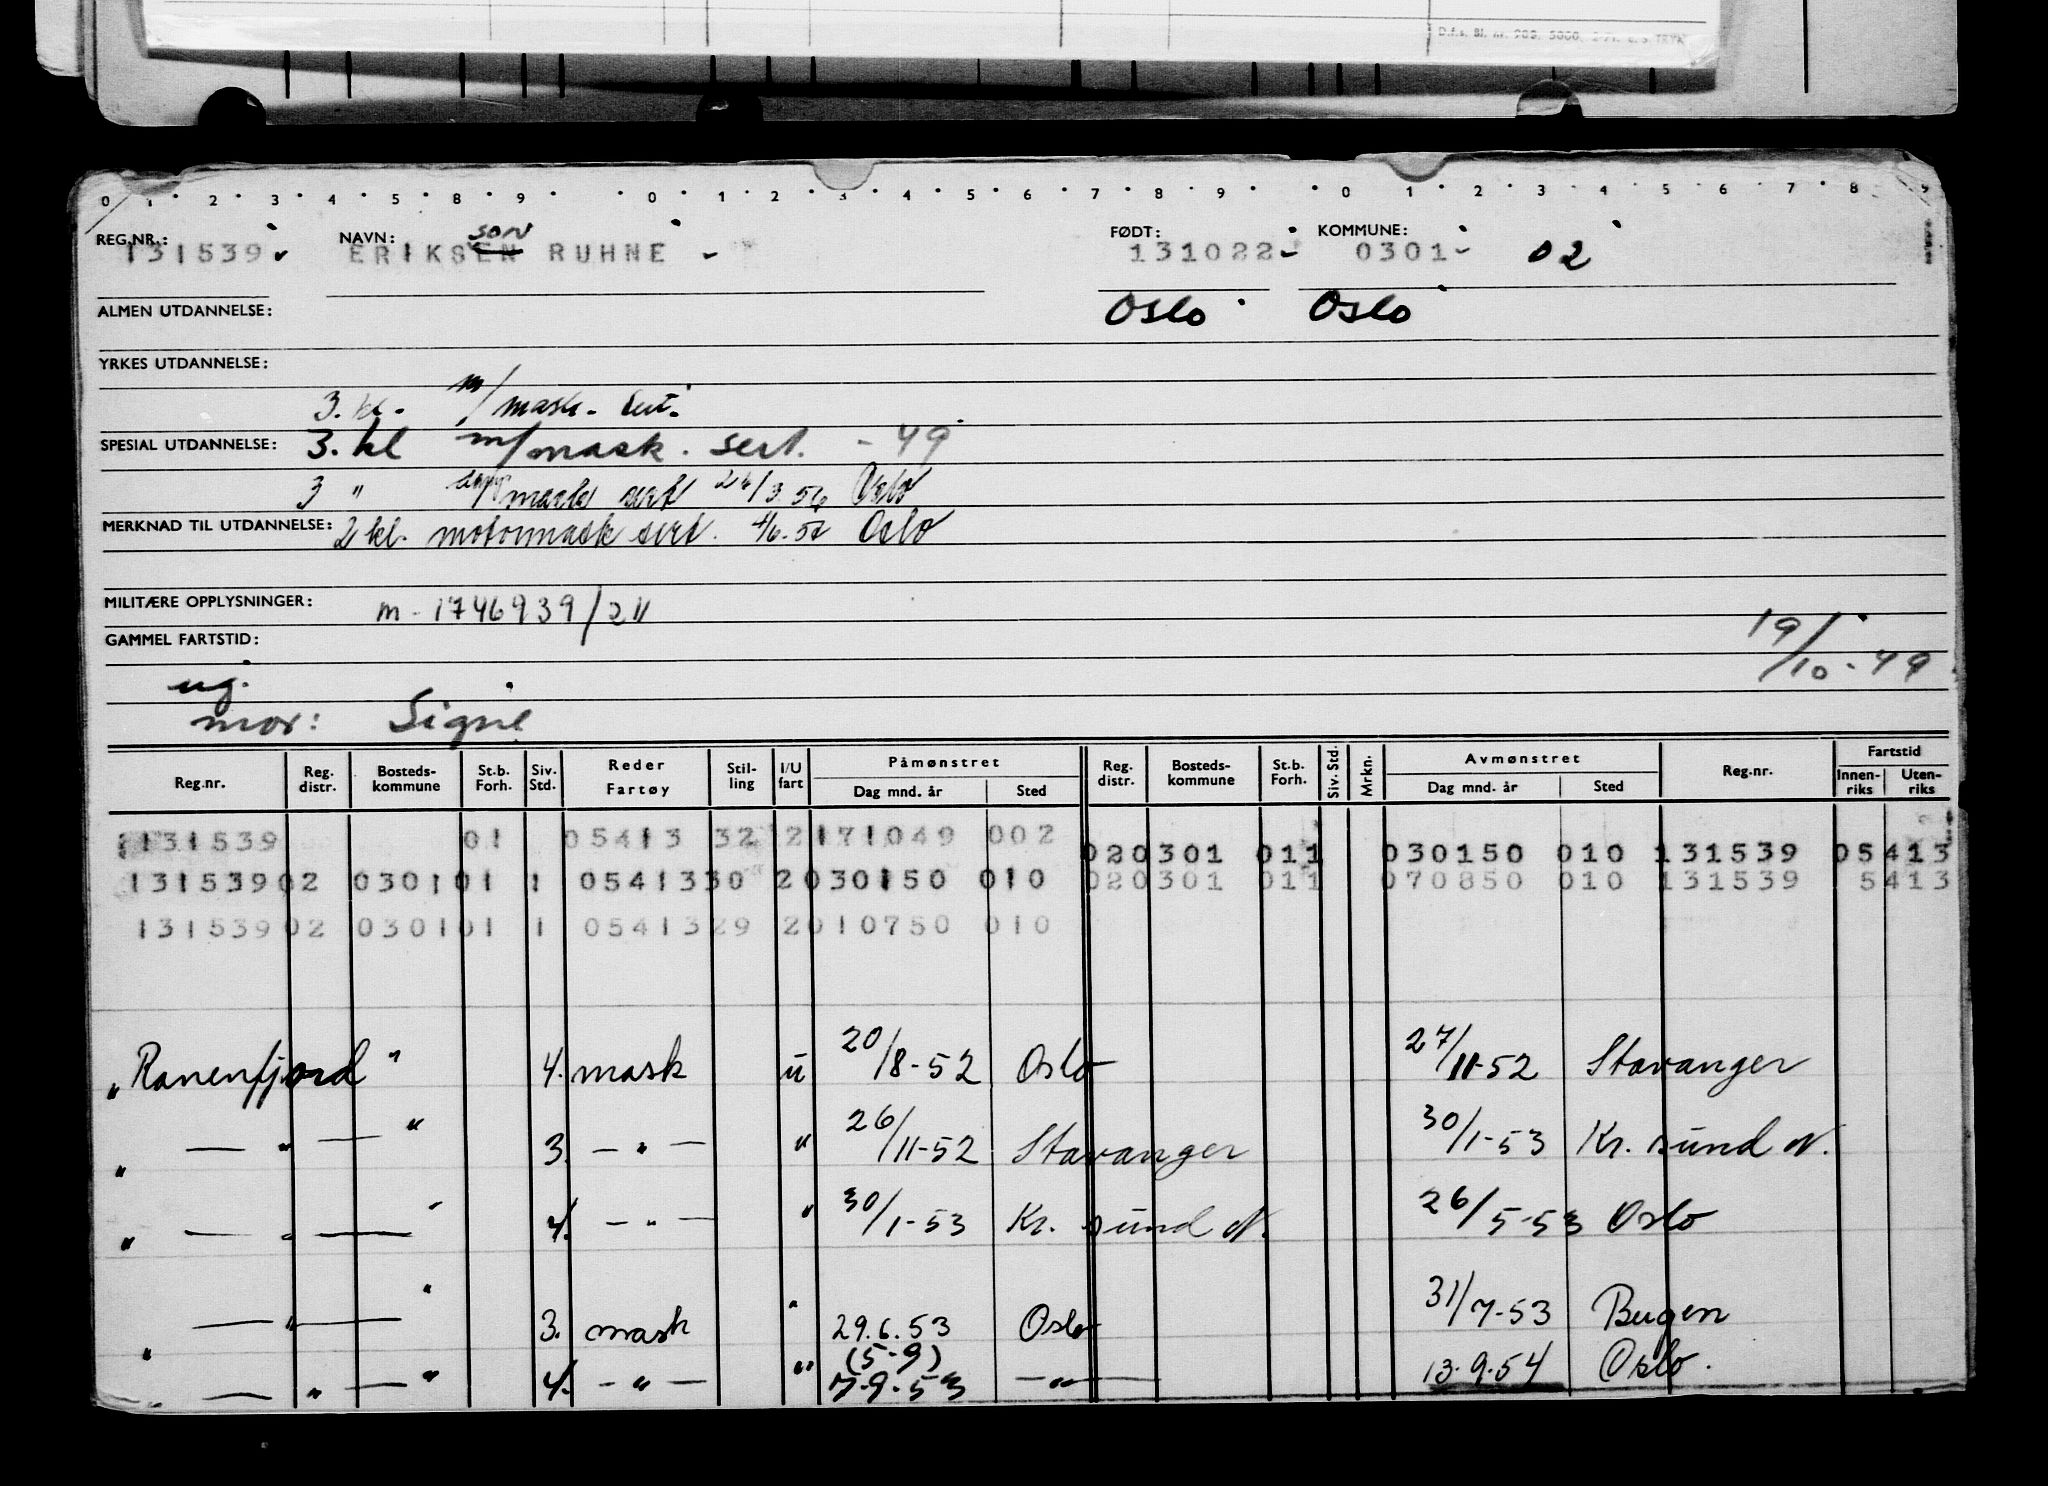 D.f.s. Bl. nr. 909. 5000.
0 1 2 3 4 5 8 9 0 1 2 3 4 5 6 7 8 9 0 1 2 3 4 5 6 7 8 9
REG.NR.: NAVN: son FØDT: KOMMUNE:
131539 ERIKSEN RUHNE 131022 0301 02
ALMEN UTDANNELSE: Oslo Oslo
YRKES UTDANNELSE:
3. kl. m/mask. sert.
SPESIAL UTDANNELSE: 3. kl m/mask. sert. - 49
3 " mask sert 24/3 56 Oslo
MERKNAD TIL UTDANNELSE: 2 kl. motormask sert. Oslo
MILITÆRE OPPLYSNINGER: m - 1746939/211
GAMMEL FARTSTID: 19/10-49
ug.
mor: Signe
Reg.nr. Reg. distr. Bosteds-kommune St.b. Forh. Siv. Std. Reder Fartøy Stil-ling I/U fart Påmønstret Dag mnd. år Sted Reg. distr. Bosteds-kommune St.b. Forh. Siv. Std. Mrkn. Avmønstret Dag mnd. år Sted Reg.nr. Fartstid Innen-riks Uten-riks
131539 01 05413 32 2171049 002 020301 011 030150 010 131539 05413
13153902 030101 1 0541330 2030150 010 020301 011 070850 010 131539 5413
13153902 030101 1 0541329 2010750 010
"Ranenfjord" 4. mask u 20/8-52 Oslo 27/11-52 Stavanger
" — " — " 3. — " — " 26/11-52 Stavanger 30/1-53 Kr. sund N.
" — " — " 4. — " — " 30/1-53 Kr. sund N. 26/5-53 Oslo
" — " — " 3. mask " 29.6.53 Oslo 31/7-53 Bugen
(5-9)
" — " — " 4. — " — " 7-9-53 — " — 13.9.54 Oslo.